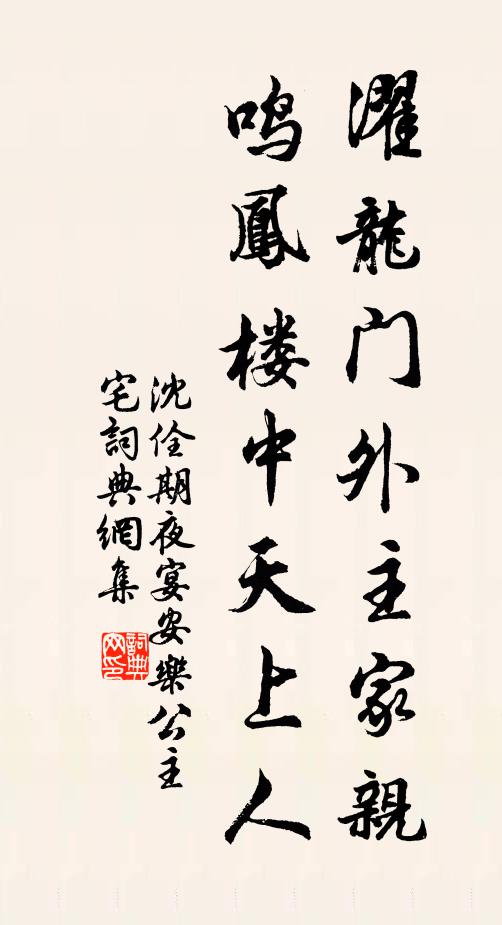 濯龍門外主家親
鳴鳳楼中天上人
沈佺期夜宴安樂公主
宅詞典網集
詞典
网印